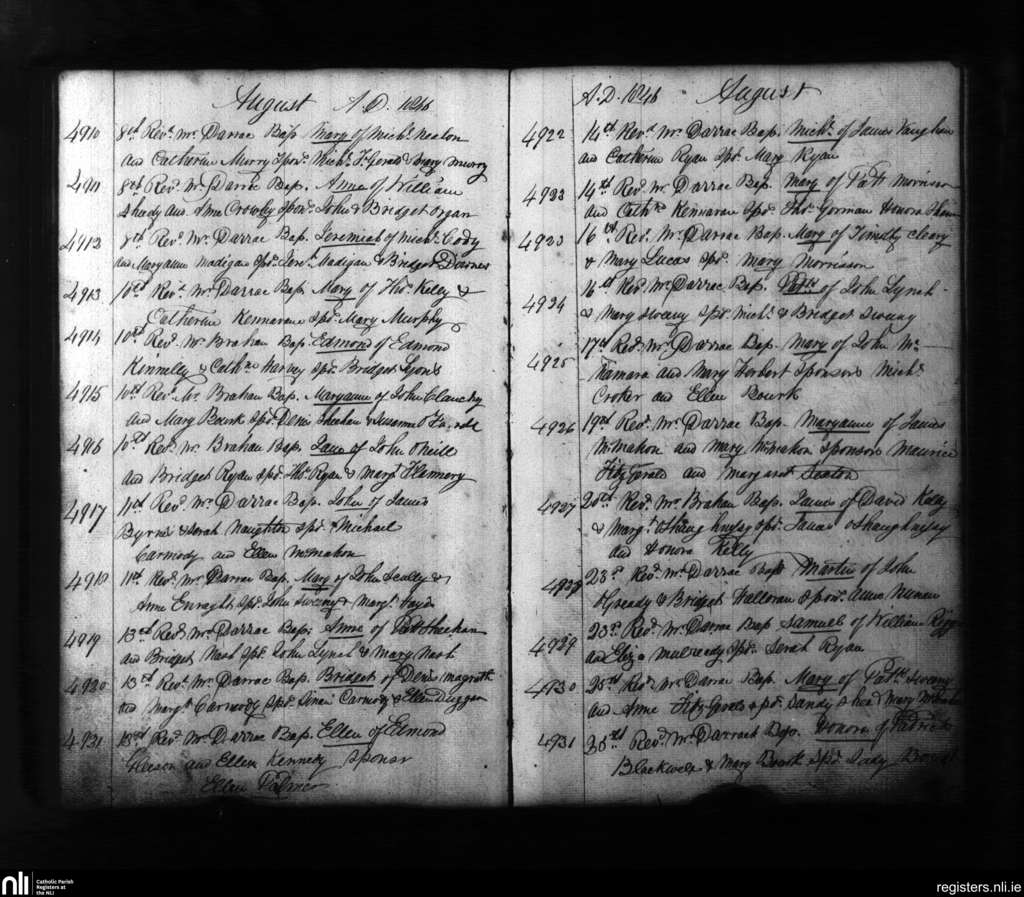 August A.D. 1846
4910 8th Revd. Mr. Darrac Bap. Mary of Michl. Neaton
and Catherin Murry Spors. Michl. FGerald & Mary Murry
4911 8th Revd. Mr. Darrac Bap. Anne of William
Sheedy and Anne Crowley Spors. John & Bridget Organ
4912 8th Revd. Mr. Darrac Bap. Jeremiah of Michl. Cody
and Maryanne Madigan Spr. Jerh. Madigan & Bridget Downes
4913 10th Revd. Mr. Darrac Bap. Mary of Thos. Kelly &
Catherin Kennavane Spr. Mary Murphy
4914 10th Revd. Mr. Brahan Bap. Edmond of Edmond
Kinnelly & Cathne. Harvey Spr. Bridget Lyons
4915 10th Revd. Mr. Brahan Bap. Maryanne of John Clanchy
and Mary Bourk Spr. Denis Sheehan & Susanna
4916 10th Revd. Mr. Brahan Bap. Jane of John ONeill
and Bridget Ryan Spr. Thos. Ryan & Margt. Flannery
4917 11th Revd. Mr. Darrac Bap. John of James
Byrnes & Sarah Naughton Spr. Michael
Carmody and Ellen McMahon
4918 11th Revd. Mr. Darrac Bap. Mary of John Scully &
Anne Enraght Spr. John Sweeny & Margt. Hayes
4919 13th Revd. Mr. Darrac Bap. Anne of Patt Sheehan
and Bridget Nash Spr. John Lynch & Mary Nash
4920 13th Revd. Mr. Darrac Bap. Bridget of Denis Magrath
and Margt. Carmody Spr. Sinan Carmody & Ellen Duggan
4931 13th Revd. Mr. Darrac Bap. Ellen of Edmond
Gleeson and Ellen Kennedy Sponsr
Ellen Palmer
A.D. 1846 August
4922 14th Revd. Mr. Darrac Bap. Michl. of James Vaughan
and Catherin Ryan Spr. Mary Ryan
4933 14th Revd. Mr. Darrac Bap. Mary of Patt Morrison
and Cathne. Kennavan Spr. Thos. Gorman Honora
4923 16th Revd. Mr. Darrac Bap. Mary of Timothy Cleary
& Mary Lucas Spr. Mary Morrisson
4924 16th Revd. Mr. Darrac Bap. Pattk. of John Lynch
& Mary Sweeny Spr. Michl. & Bridget Sweeny
4925 17th Revd. Mr. Darrac Bap. Mary of John Mc
Namara and Mary Herbert Sponsors Michl.
Croker and Ellen Bourk
4926 19th Revd. Mr. Darrac Bap. Maryanne of James
McMahon and Mary McMahon Sponsors Maurice
FitzGerald and Margaret Seaton
4927 20th Revd. Mr. Brahan Bap. James of David Kelly
& Margt. OShaughnessy Spr. James OShaughnessy
and Honora Kelly
4928 23rd. Revd. Mr. Darrac Bap. Martin of John
OGready & Bridget Halloran Spors. Anne Nunan
4929 23rd. Revd. Mr. Darrac Bap. Samuel of William
and Eliza Mulready Spr. Serah Ryan
4930 25th Revd. Mr. Darrac Bap. Mary of Pattk. Sweeny
and Anne FitzGerald Spr. Sandy Shea & Mary McMahon
4931 30th Revd. Mr. Darrack Bap. Honora of Padrick
Blackwell & Mary Bourk Spr. Sady
nli Catholic Parish
Registers at
the NLI
registers.nli.ie